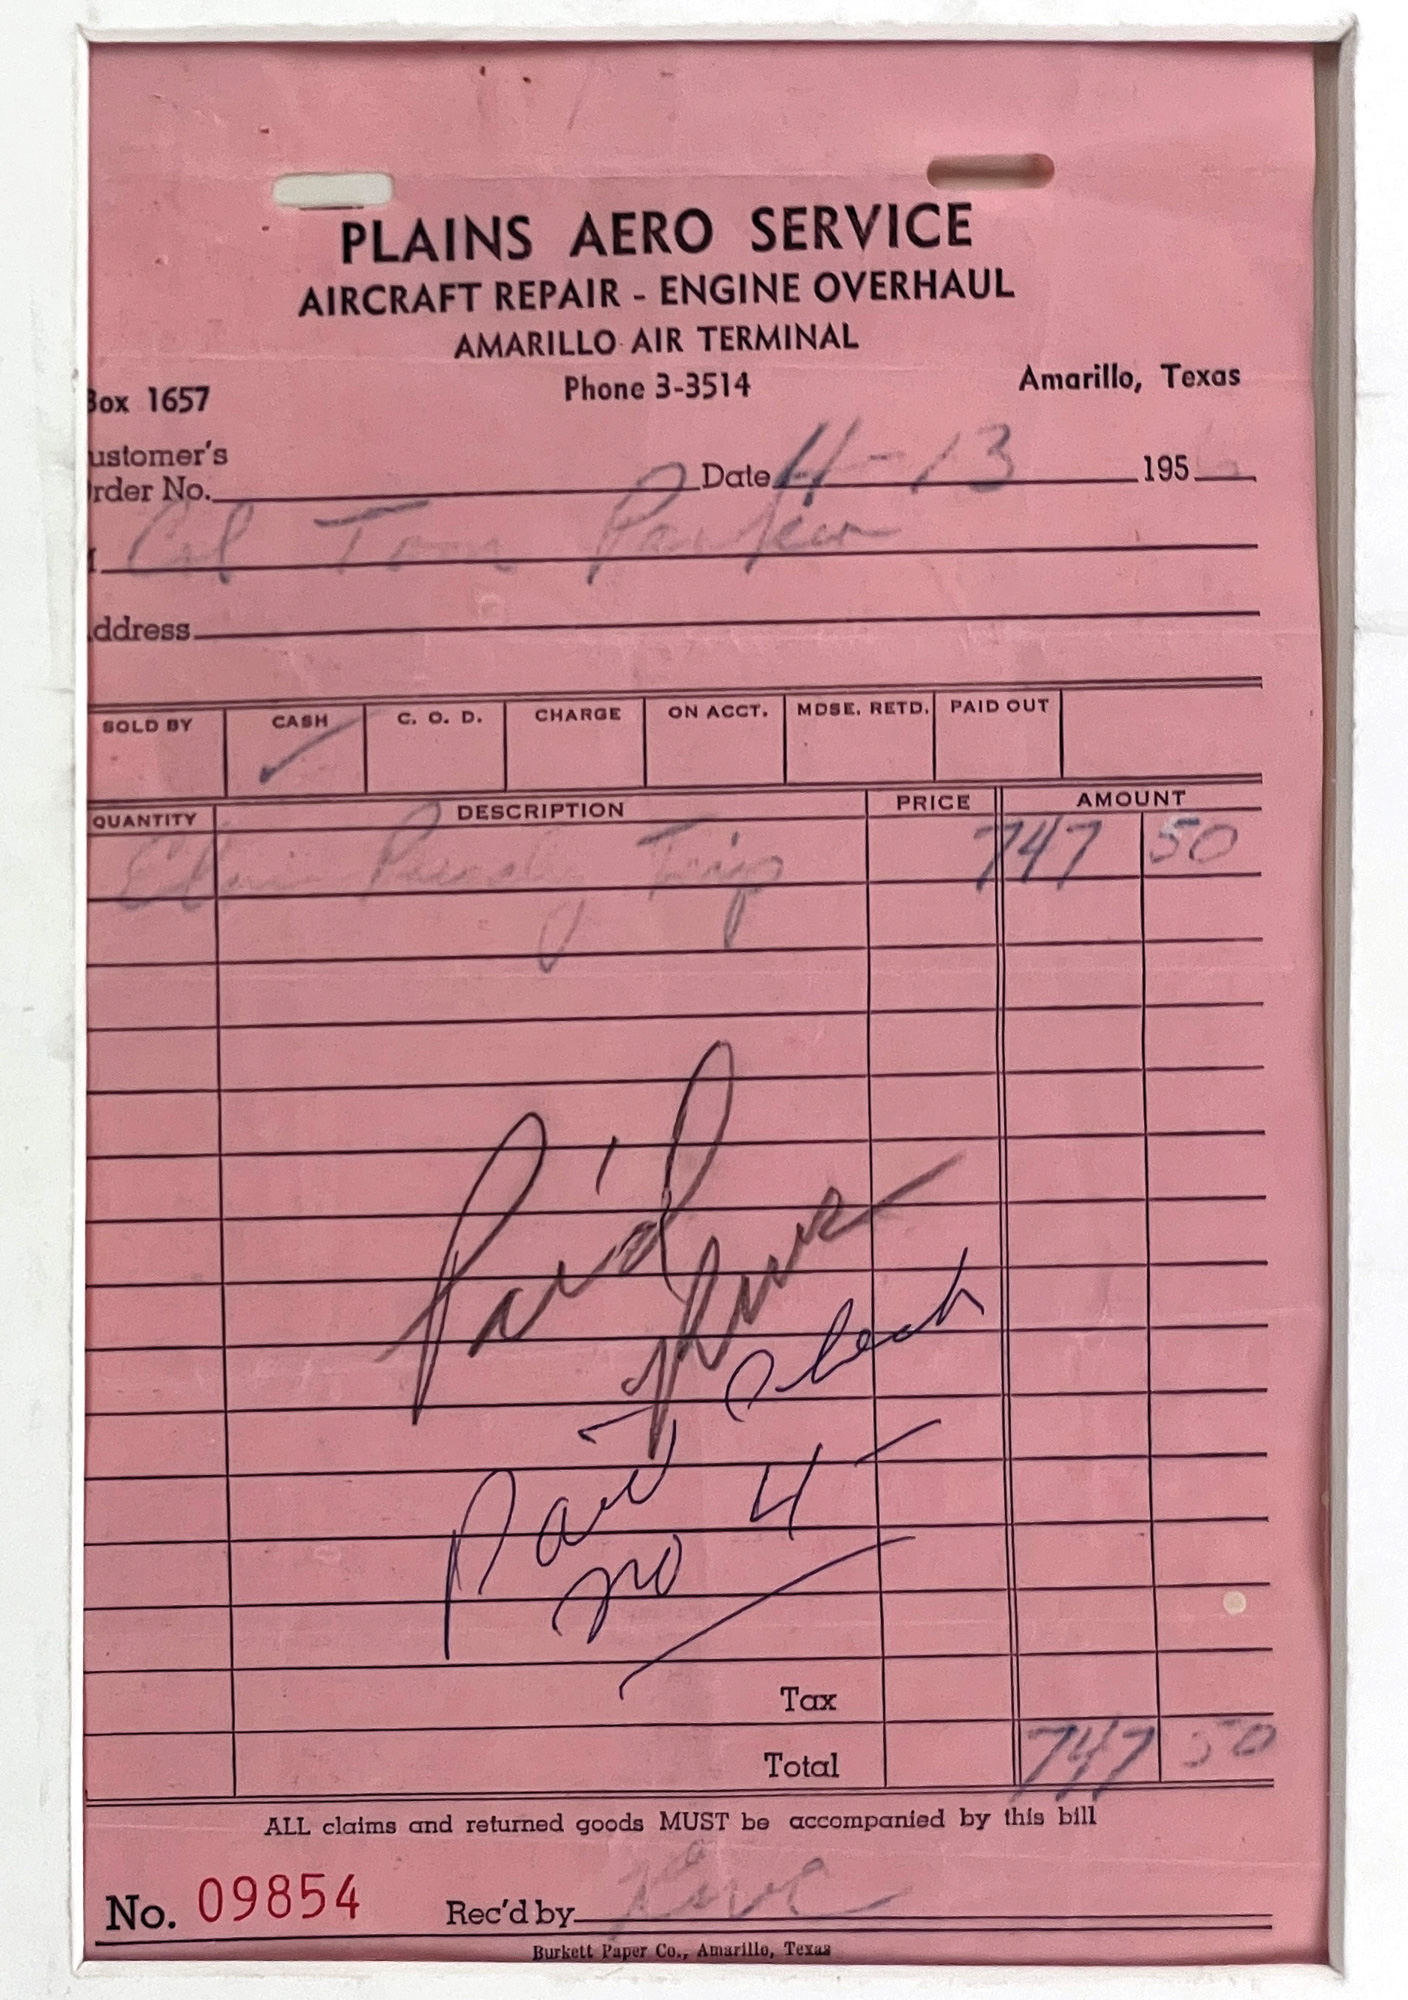 PLAINS AERO SERVICE
AIRCRAFT REPAIR - ENGINE OVERHAUL
AMARILLO AIR TERMINAL
Box 1657 Phone 3-3514 Amarillo, Texas
ustomer's
rder No. Date 4-13 1956
Col Tom Parker
ddress
SOLD BY CASH ✓ C. O. D. CHARGE ON ACCT. MDSE. RETD. PAID OUT
QUANTITY DESCRIPTION PRICE AMOUNT
Elvis Presley Trip 747 50
Paid
Check
Paid
no 4
Tax
Total 747 50
ALL claims and returned goods MUST be accompanied by this bill
No. 09854 Rec'd by
Burkett Paper Co., Amarillo, Texas